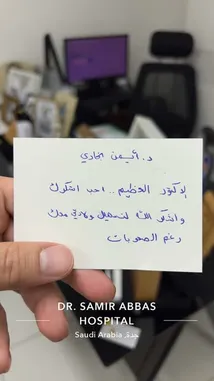 د. أيمن
الدكتور العظيم .. احب اشكرك
واشكر الله لتسهيل ولادتي معك
رغم الصعوبات
DR. SAMIR ABBAS
HOSPITAL
Saudi Arabia جدة,